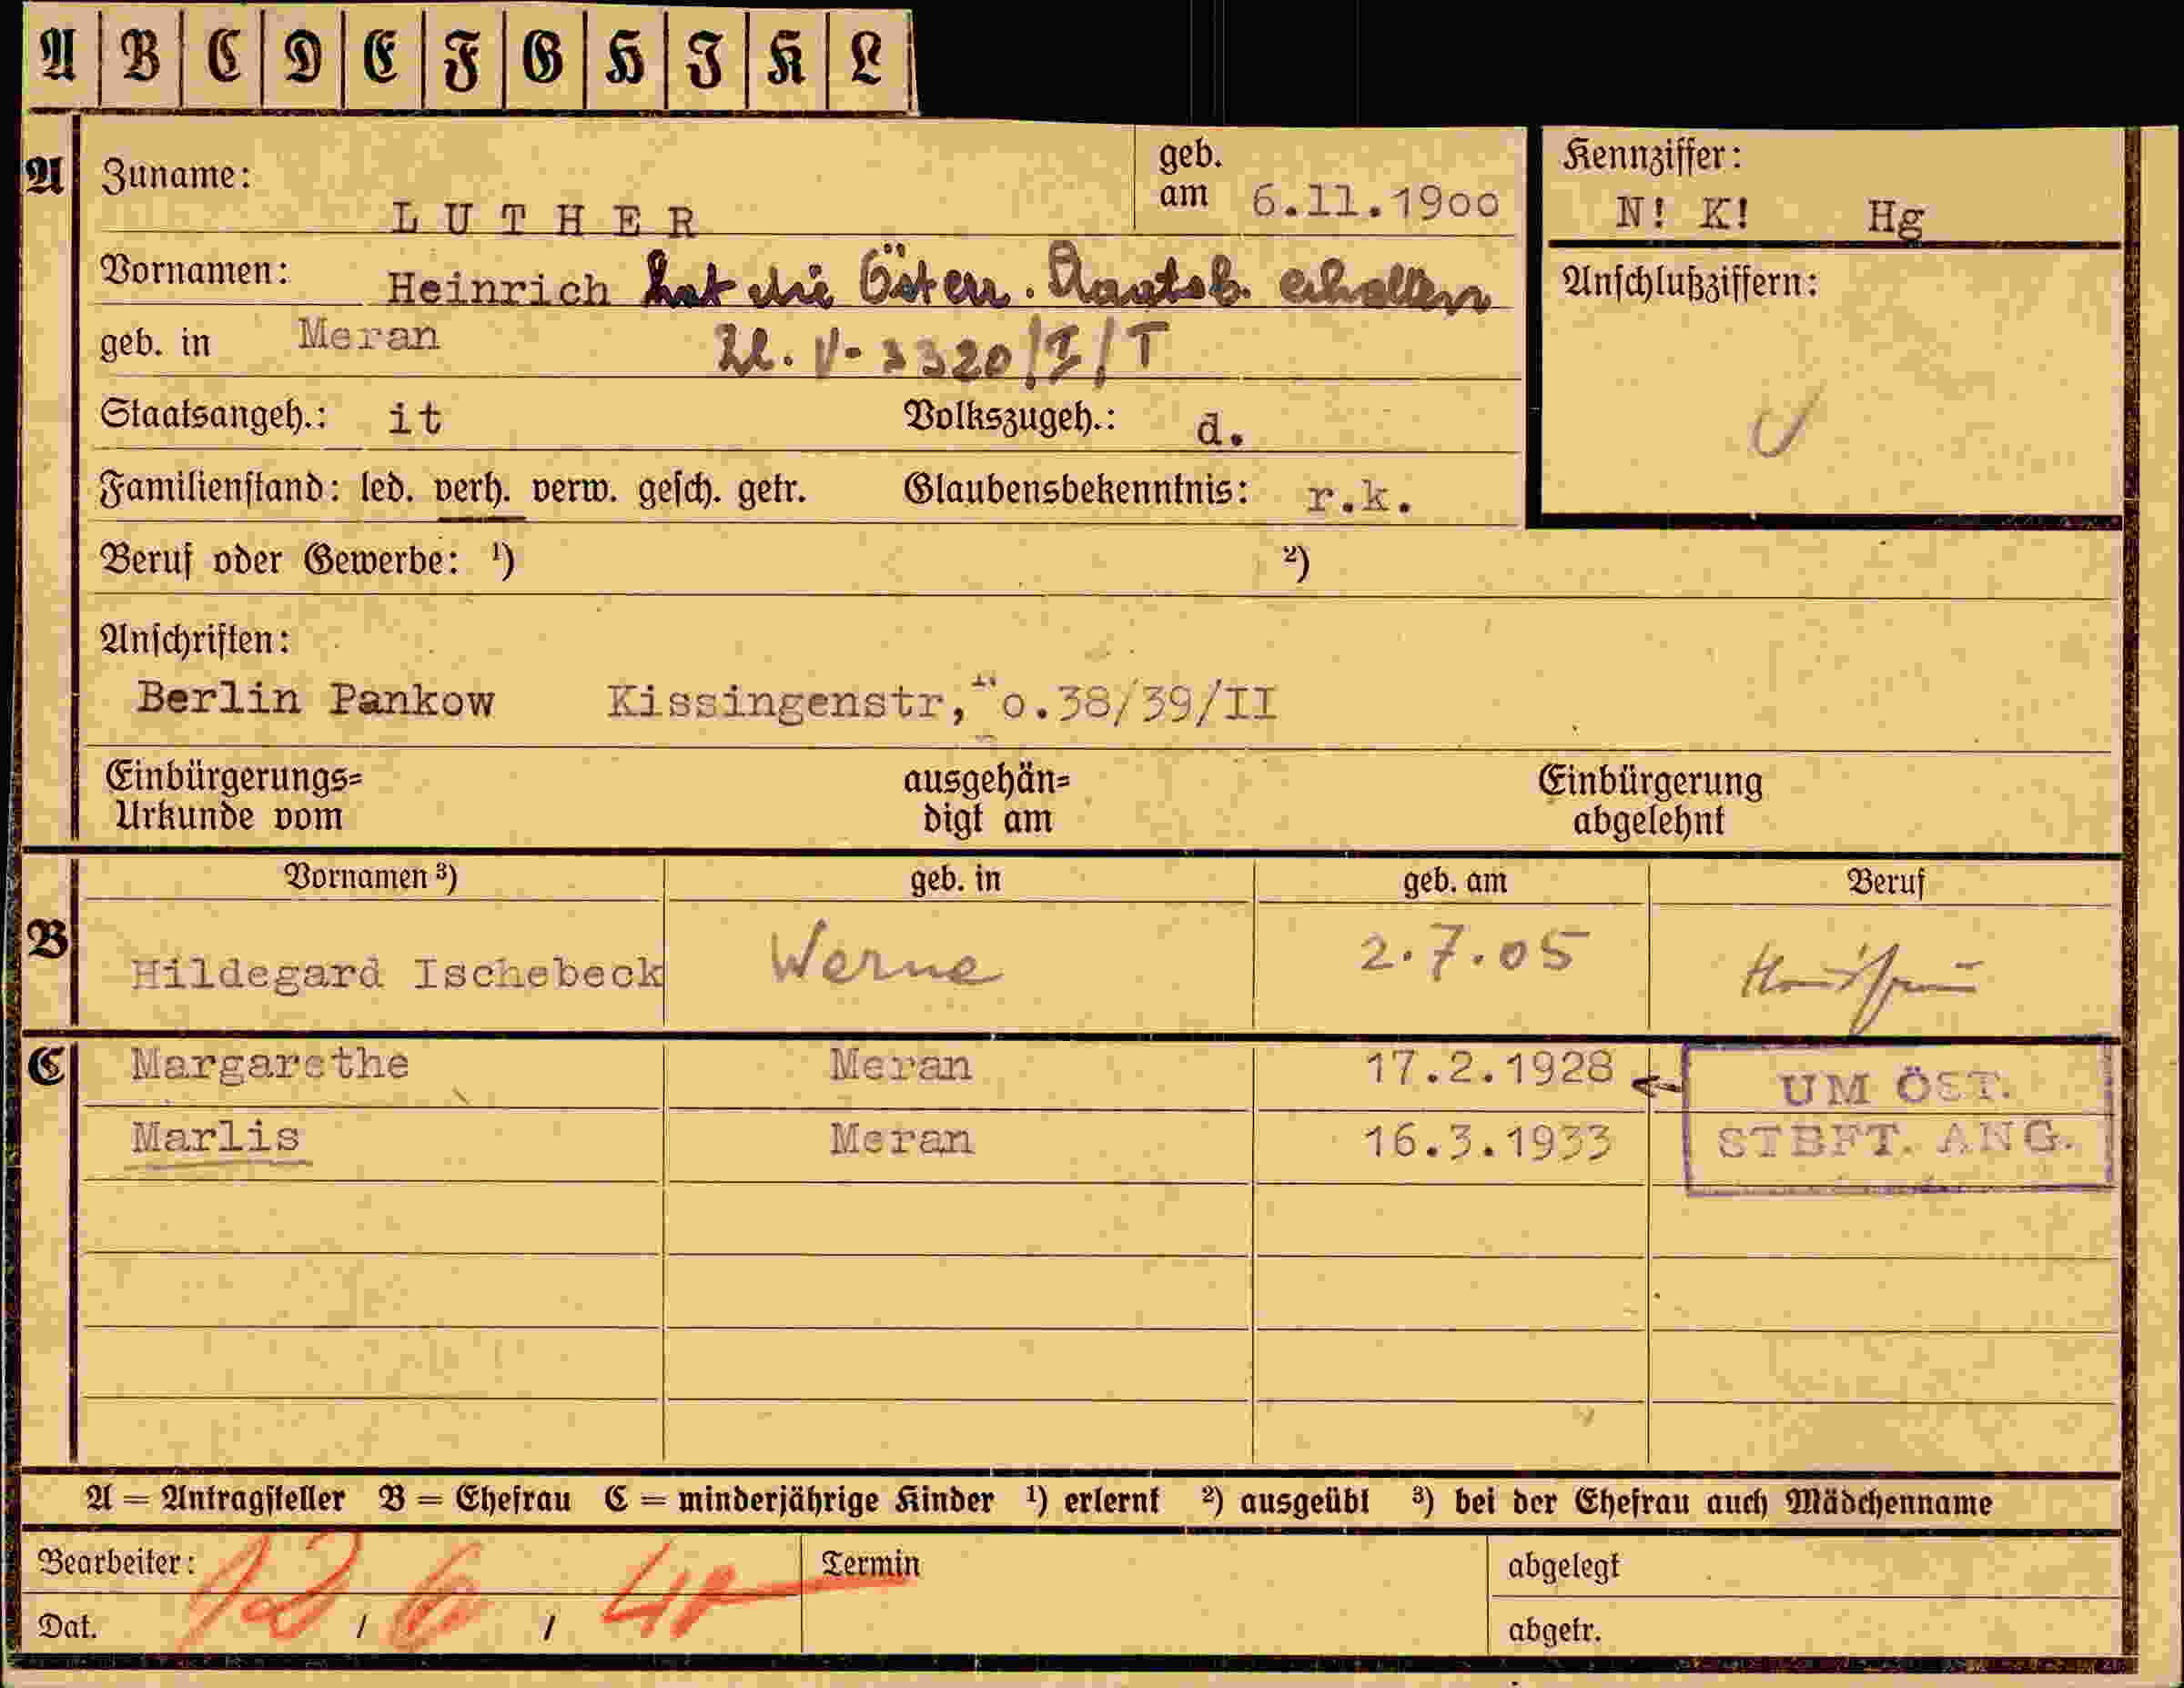 A B C D E F G H I K L
A Zuname: LUTHER geb. am 6.11.1900 Kennziffer: N! K! Hg
Vornamen: Heinrich hat die Österr. Staatsb. erhalten Anschlußziffern:
geb. in Meran Zl. V-3320/I/T
Staatsangeh.: it Volkszugeh.: d.
Familienstand: led. verh. verw. gesch. getr. Glaubensbekenntnis: r.k.
Beruf oder Gewerbe: ¹) ²)
Anschriften:
Berlin Pankow Kissingenstr, o.38/39/II
Einbürgerungs= ausgehän= Einbürgerung
Urkunde vom digt am abgelehnt
Vornamen ³) geb. in geb. am Beruf
B Hildegard Ischebeck Werne 2.7.05 Hausfrau
C Margarethe Meran 17.2.1928 UM ÖST.
Marlis Meran 16.3.1933 STBFT. ANG.
A = Antragsteller B = Ehefrau C = minderjährige Kinder ¹) erlernt ²) ausgeübt ³) bei der Ehefrau auch Mädchenname
Bearbeiter: Termin abgelegt
Dat. 12 / 6 / 40 abgetr.